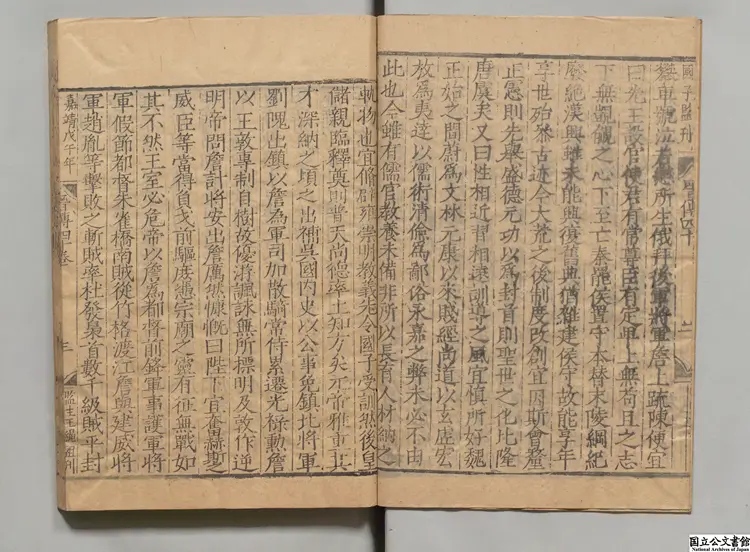 國子監刊 晉傳四十 二
攀車號泣若戀所生俄拜後軍將軍詹上疏陳便宜
曰先王設官使君有常尊臣有定卑上無苟且之志
下無覬覦之心下至亡秦罷侯置守本替末陵綱紀
廢絕漢興雖未能興復舊典猶雜建侯守故能享年
享世殆參古迹今大荒之後制度改創宜因斯會釐
正憲則先舉盛德元功以爲封首則聖世之化比隆
唐虞矣又曰性相近習相遠訓導之風宜慎所好魏
正始之間蔚爲文林元康以來賤經尚道以玄虛宏
放爲夷達以儒術清儉爲鄙俗永嘉之弊未必不由
此也今雖有儒官教養未備非所以長育人材納之
軌物也宜脩辟雍崇明教義先令國子受訓然後皇
儲親臨釋奠則普天尚德率土知方矣元帝雅重其
才深納之頃之出補吳國內史以公事免鎮北將軍
劉隗出鎮以詹爲軍司加散騎常侍累遷光祿勳詹
以王敦專制自樹故優游諷詠無所標明及敦作逆
明帝問詹計將安出詹厲然慷慨曰陛下宜奮赫斯之
威臣等當得負戈前驅庶憑宗廟之靈有征無戰如
其不然王室必危帝以詹爲都將前鋒軍事護軍將
軍假節都督朱雀橋南賊從竹格渡江詹與建威將
軍趙胤等擊敗之斬賊率杜發梟首數千級賊平封
嘉靖戊午年 晉傳四卷 三 監生王 刊
国立公文書館
National Archives of Japan